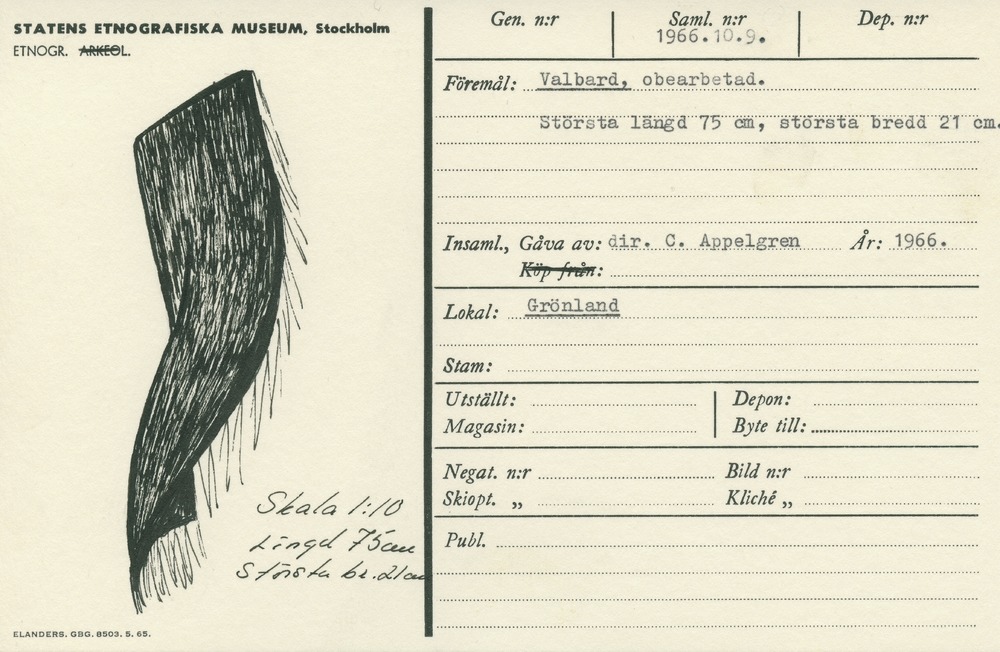 STATENS ETNOGRAFISKA MUSEUM, Stockholm
ETNOGR. ARKEOL.
Skala 1:10
Längd 75cm
Största br. 21cm
ELANDERS. GBG. 8503. 5. 65.
Gen. n:r
Saml. n:r
1966.10.9.
Dep. n:r
Föremål: Valbard, obearbetad.
Största längd 75 cm, största bredd 21 cm.
Insaml., Gåva av: dir. C. Appelgren År: 1966.
Köp från:
Lokal: Grönland
Stam:
Utställt: Depon:
Magasin: Byte till:
Negat. n:r Bild n:r
Skiopt. „ Kliché „
Publ.